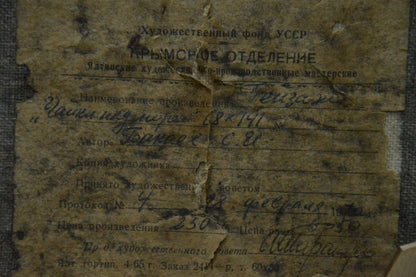 Художественный фонд УССР
КРЫМСКОЕ ОТДЕЛЕНИЕ
Ялтинские художественно-производственные мастерские
Наименование произведения Пейзаж
"Чайки над морем" 68×141
Автор С. И.
Копия художника
Принято художественным советом
Протокол № 4 февраля
Цена произведения 250 Цена рамы
Пр-дь художественного совета
Ялт. гортип. 4-65 г. Заказ 2411—р, т.